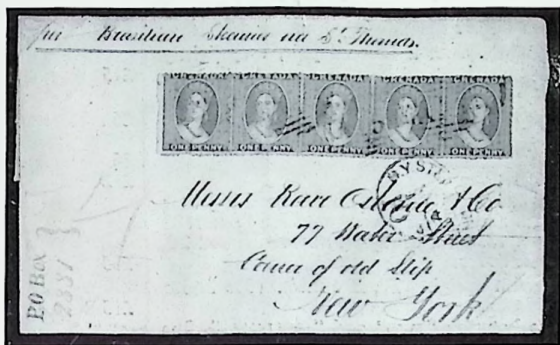 per Brazilian Steamer via St Thomas.
GRENADA GRENADA GRENADA GRENADA GRENADA
ONE PENNY ONE PENNY ONE PENNY ONE PENNY ONE PENNY
Messrs & Co
77 Water Street
Corner of old Slip
New York
P.O Box